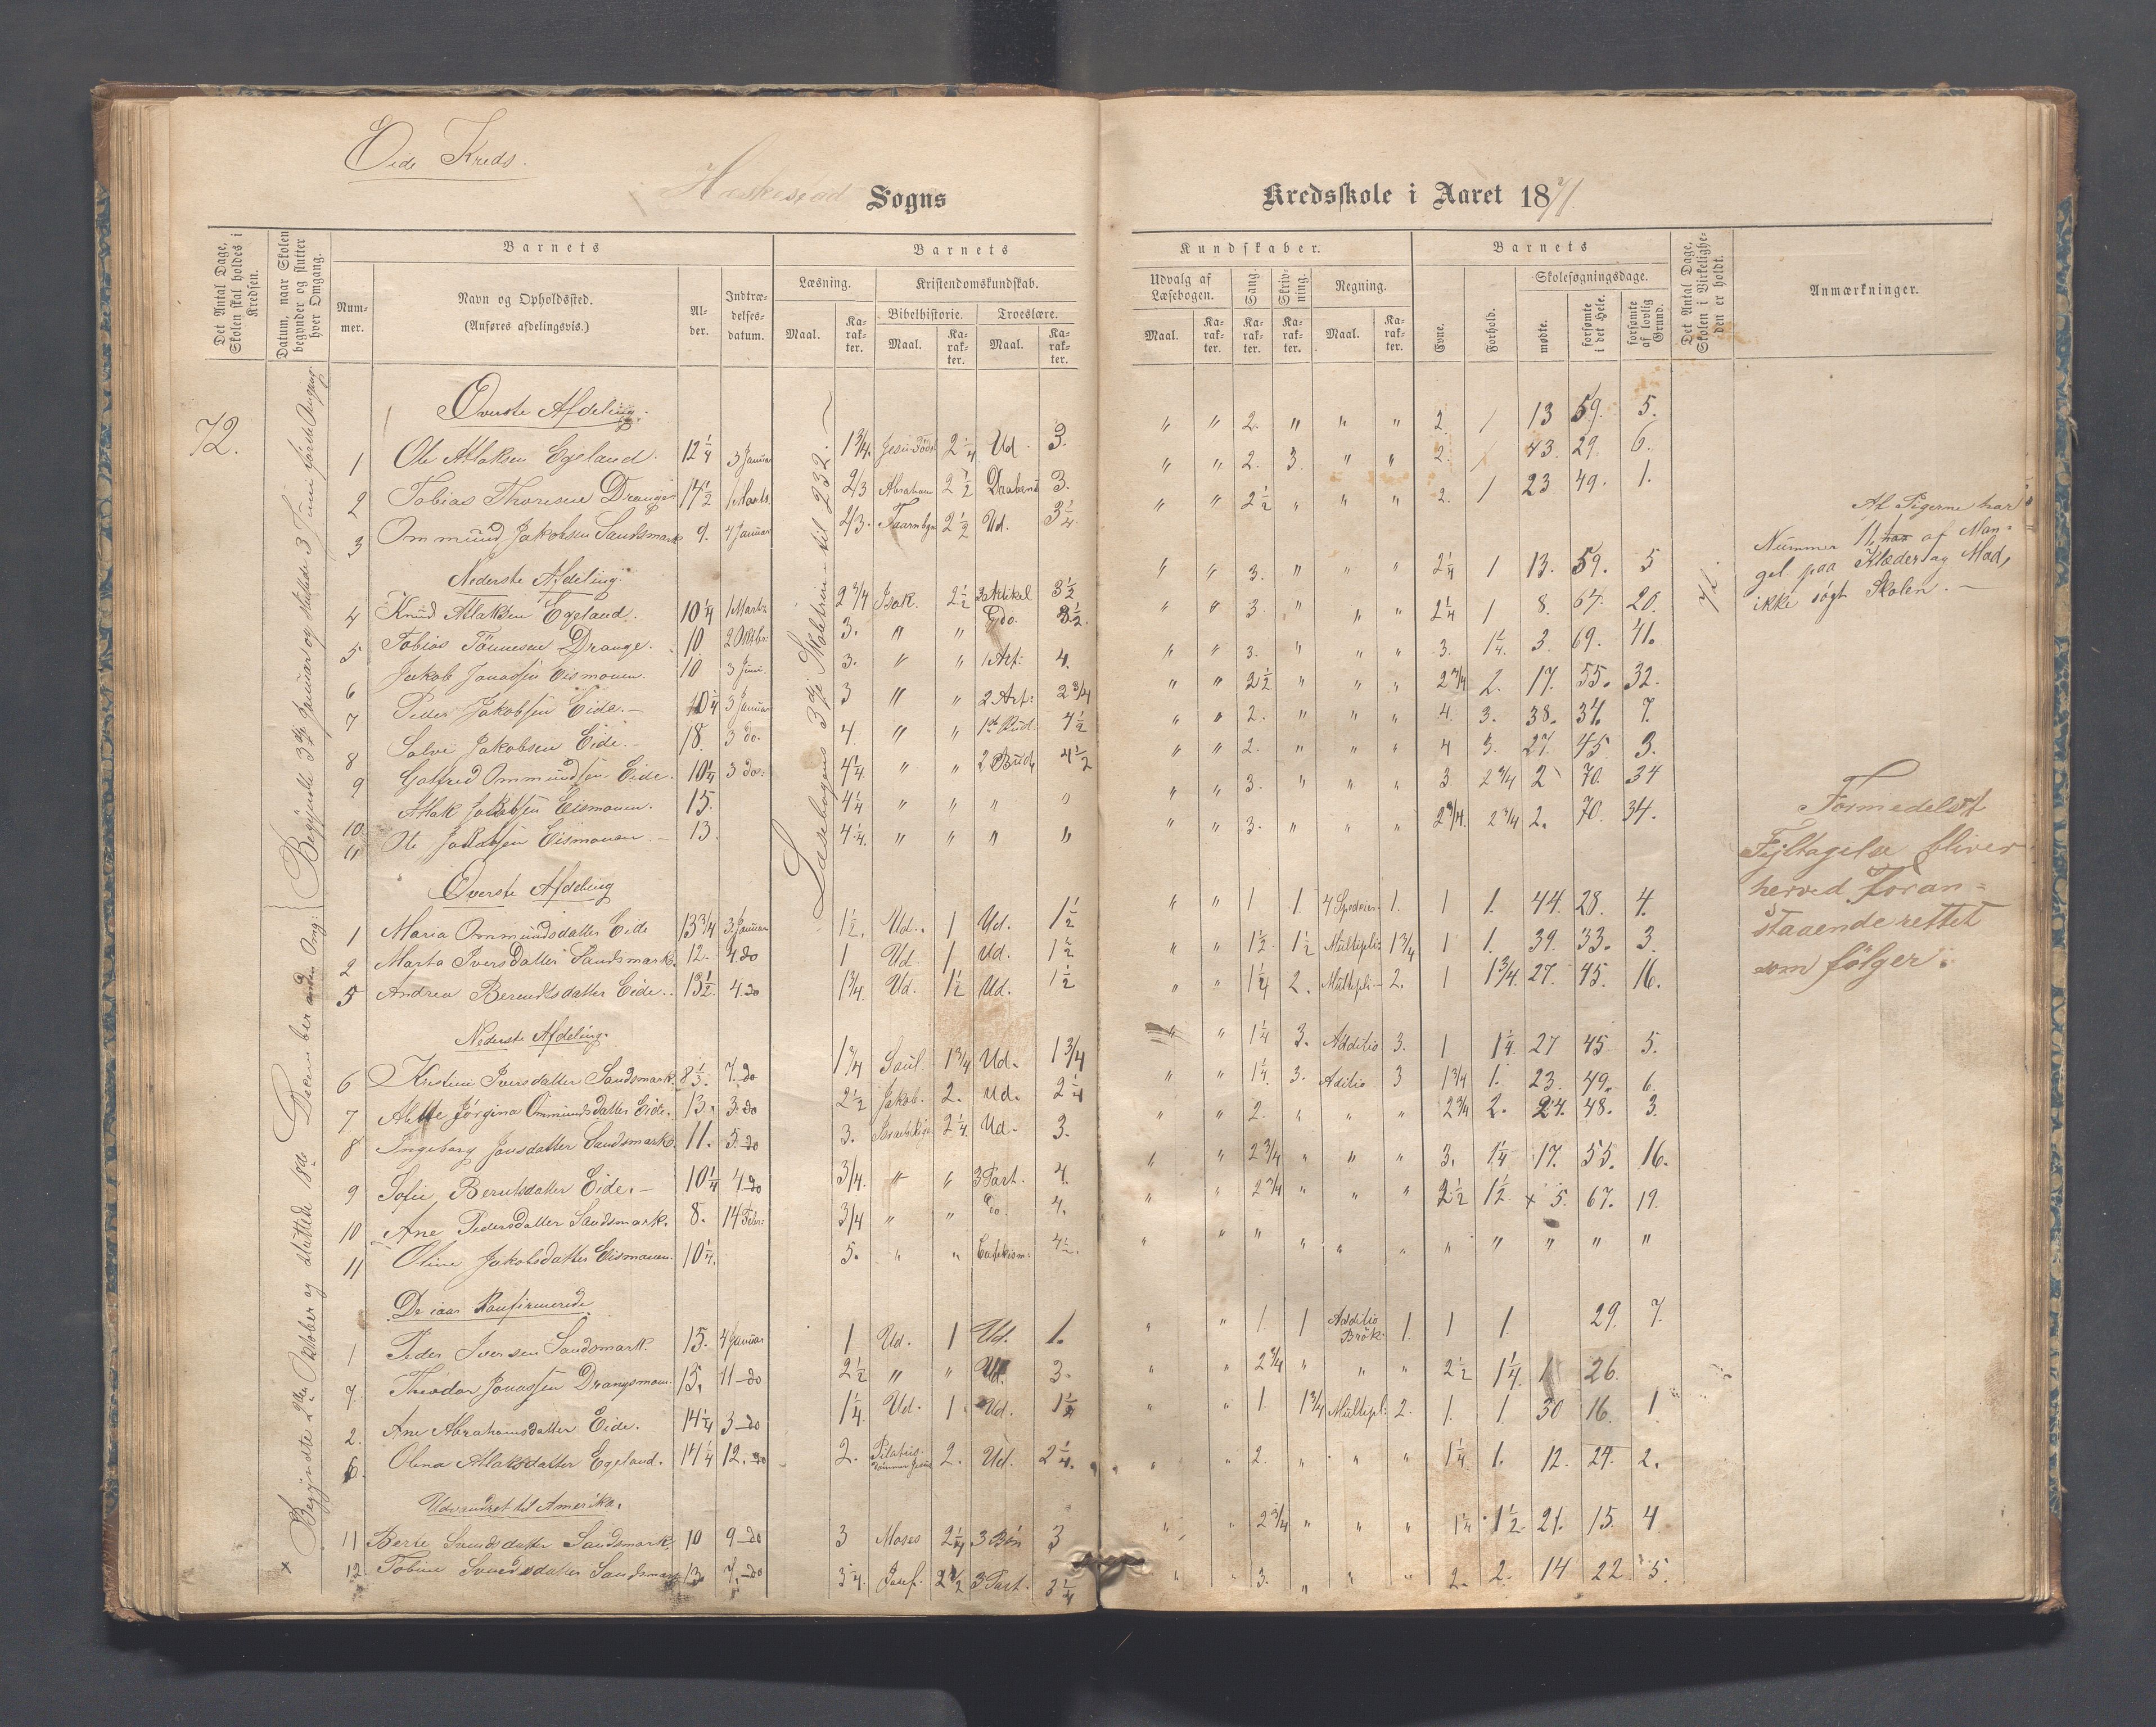 Eide Kreds.
Heskestad Sogns Kredsskole i Aaret 1871
Det Antal Dage, Skolen skal holdes i Kredsen.
Datum, naar Skolen begynder og slutter hver Omgang.
Barnets
Nummer.
Navn og Opholdssted. (Anføres afdelingsvis.)
Alder.
Indtrædelsesdatum.
Barnets
Læsning.
Maal. Karakter.
Kristendomskundskab.
Bibelhistorie. Troeslære.
Maal. Karakter. Maal. Karakter.
Kundskaber.
Udvalg af Læsebogen.
Maal. Karakter.
Sang. Karakter.
Skrivning. Karakter.
Regning.
Maal. Karakter.
Barnets
Evne. Forhold.
Skolesøgningsdage.
mødte. forsømte i det Hele. forsømte af lovlig Grund.
Det Antal Dage, Skolen i Virkeligheden er holdt.
Anmærkninger.
72.
Begyndte 2den Oktober og sluttede 18de December anden Omg:
Læsebogens 3die Skoletrin til 232.
Øverste Afdeling.
1 Ole Atlaksen Egeland. 12 1/4 3 Januar 1 3/4. Jesu Føds 2 1/4 Ud. 3. " " 2. " " " 2. 1 13 59. 5.
2 Tobias Thoresen Drange 14 1/2 1 Marts 2/3 Abraham 2 1/2 3. " " 2. 3. " " 2. 1 43. 29. 6.
3 Ommund Jakobsen Sandsmark 9. 4 Januar 2/3. 2 1/2 Ud. 3 1/4 " " 2 1/2 " " " 2. 1 23 49. 1.
Nederste Afdeling.
4 Knud Atlaksen Egeland. 10 1/4 1 Marts 2 3/4 Isak. 2 1/2 2 Artikel 3 1/2 " " 3. " " " 2 1/4 1 13. 59. 5
5 Tobias Tönnesen Drange. 10. 2 Oktbr: 3. " " do. 3 1/2. " " 3. " " " 2 1/4 1 8. 64. 20.
6 Jakob Jonassen Eismoen. 10 3 Juni. 3. " " 1 Art: 4. " " 3. " " " 3. 1 1/4. 3. 69. 41.
7 Peder Jakobsen Eide. 10 1/4 3 Januar 3 " " 2 Art: 2 3/4 " " 2 1/2 " " " 2 3/4 2. 17. 55. 32.
8 Salve Jakobsen Eide. 18. 3 do. 4. " " 1ste Bud. 4 1/2 " " 2. " " " 4. 3. 38. 34. 7.
9 Gotfred Ommundsen Eide. 10 1/4 3 do: 4 1/4. " " 2 Bud 4 1/2 " " 2. " " " 4 3. 27. 45 3.
10 Atlak Jakobsen Eismoen. 15. 4 1/4 " " " " " " 3. " " " 3 2 3/4 2 70. 34
11 Ole Jakobsen Eismoen. 13. 4 1/4. " " " " " " 3. " " " 2 3/4. 2 3/4 2. 70. 34.
Øverste Afdeling
1 Maria Ommundsdatter Eide 13 3/4 3. Januar 1 1/2. Ud. 1 Ud. 1 1/2 " " 1 1. 4 Species. 1. 1 1. 44. 28. 4.
2 Marta Iversdatter Sandsmark. 12. 4. do 1 Ud 1 Ud. 1 1/2 " " 1 1/2. 1 1/2 Multipli: 1 3/4 1 1. 39. 33. 3.
5 Andrea Berentsdatter Eide. 13 1/2. 4. do 1 3/4. Ud. 1 1/2 Ud. 1 1/2 " " 1 1/4 2. Multipli- 2. 1 1 3/4. 27. 45. 16.
Nederste Afdeling.
6 Kristine Iversdatter Sandsmark 8 1/3. 7. do 1 3/4 Saul. 1 3/4 Ud. 1 3/4 " " 1 1/4 3. Additio 3. 1 1 1/4. 27 45 5.
7 Jörgina Ommundsdatter Eide. 13. 3. do 2 1/2 Jakob. 2. Ud. 2 1/4 " " 1 1/4. 3. Aditio 3 1 3/4 1. 23. 49. 6.
8 Ingeborg Jonsdatter Sandsmark. 11. 5. do 3. 2 1/4. Ud. 3. " " 2. " " " 2 3/4 2. 24. 48. 3.
9 Sofie Berntsdatter Eide. 10 1/4 4. do 3/4. " " 3 Part. 4. " " 2 3/4 " " " 3. 1 1/4 17. 55. 16.
10 Ane Pedersdatter Sandsmark. 8. 14 Febr: 3/4 " " do. 4. " " 2 3/4 " " " 2 1/2 1 1/2. x 5. 67. 19.
11 Oline Jakobsdatter Eismoen. 10 1/4. 5. " " Catekism: 4 1/2. " " " " " " " " " " "
De iaar Konfirmerede
1 Peder Iversen Sandsmark. 15. 4 Januar 1 Ud. 1 Ud. 1. " " 1. 1 Additio Brök. 1. 1 1. 29. 7.
7. Theodor Jonassen Drangsmoen. 15. 11 do 2 1/2 " " Ud. 3. " " 2 3/4 " " " 2 1/2 1 1/4. 1 26.
2. Ane Abrahamsdatter Eide. 14 1/4 3 do 1 1/4. Ud. 1 Ud. 1 1/2 " " 1. 1 3/4 Multipl: 2. 1. 1. 30 16. 1
6. Olena Atlaksdatter Egeland. 14 1/4 12. do 2. Pilatus dömmer Jesus 2. Ud. 2 1/4. " " 2. " " " 1 1/4. 1. 12. 24. 2.
Udvandret til Amerika.
11 Berte Svendsdatter Sandsmark. 10 9 do 3 Moses 2 1/4 3 Bön 3 " " 2 3/4 " " " 1 1/4 1 1/2. 21. 15. 4
12. Tobine Svendsdatter Sandsmark 13. 7. do 3 1/4. Josef. 2 1/2 3 Part. 3 1/4 " " 3. " " " 2. 2. 14 22. 5.
72.
At Pigerne har
Nummer 11, af Man-
gel paa Klæder og Mad,
ikke søgt Skolen. -
Formedelst
Fejltagelse bliver
herved Foran-
staaende rettet
som følger: